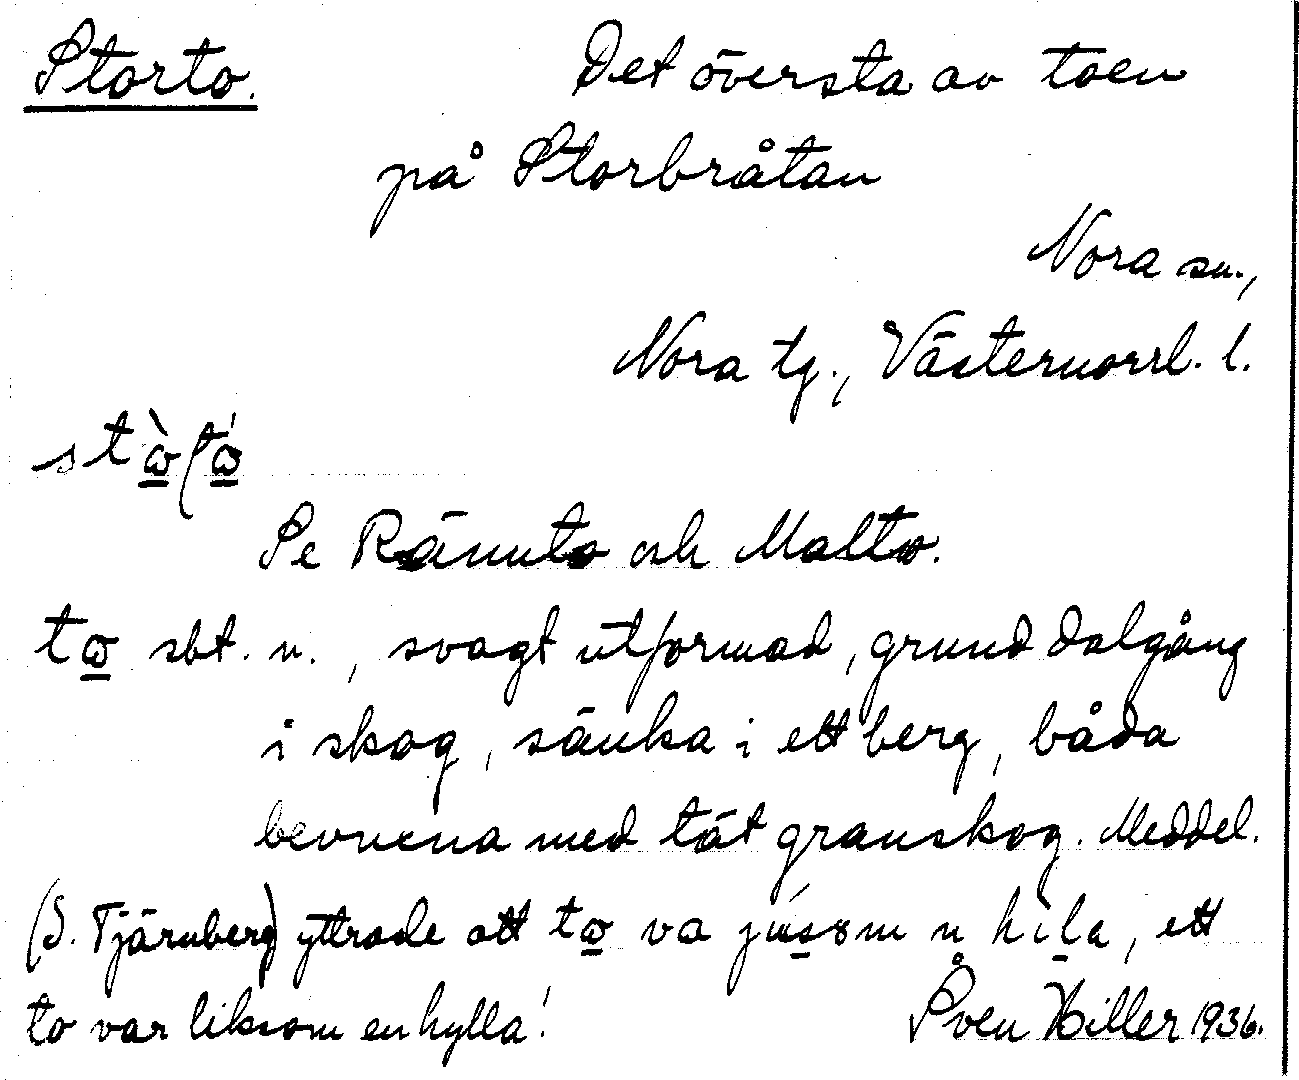 Storto. Det översta av toen
på Storbråtan
Nora sn.,
Nora tg., Västernorrl. l.
Se Rännto och Malto.
to sbt. n., svagt utformad, grund dalgång
i skog, sänka i ett berg, båda
bevuxna med tät granskog. Meddel.
(S. Tjärnberg) yttrade att to va jusom n hila, ett
to var liksom en hylla!
Sven Hiller 1936.